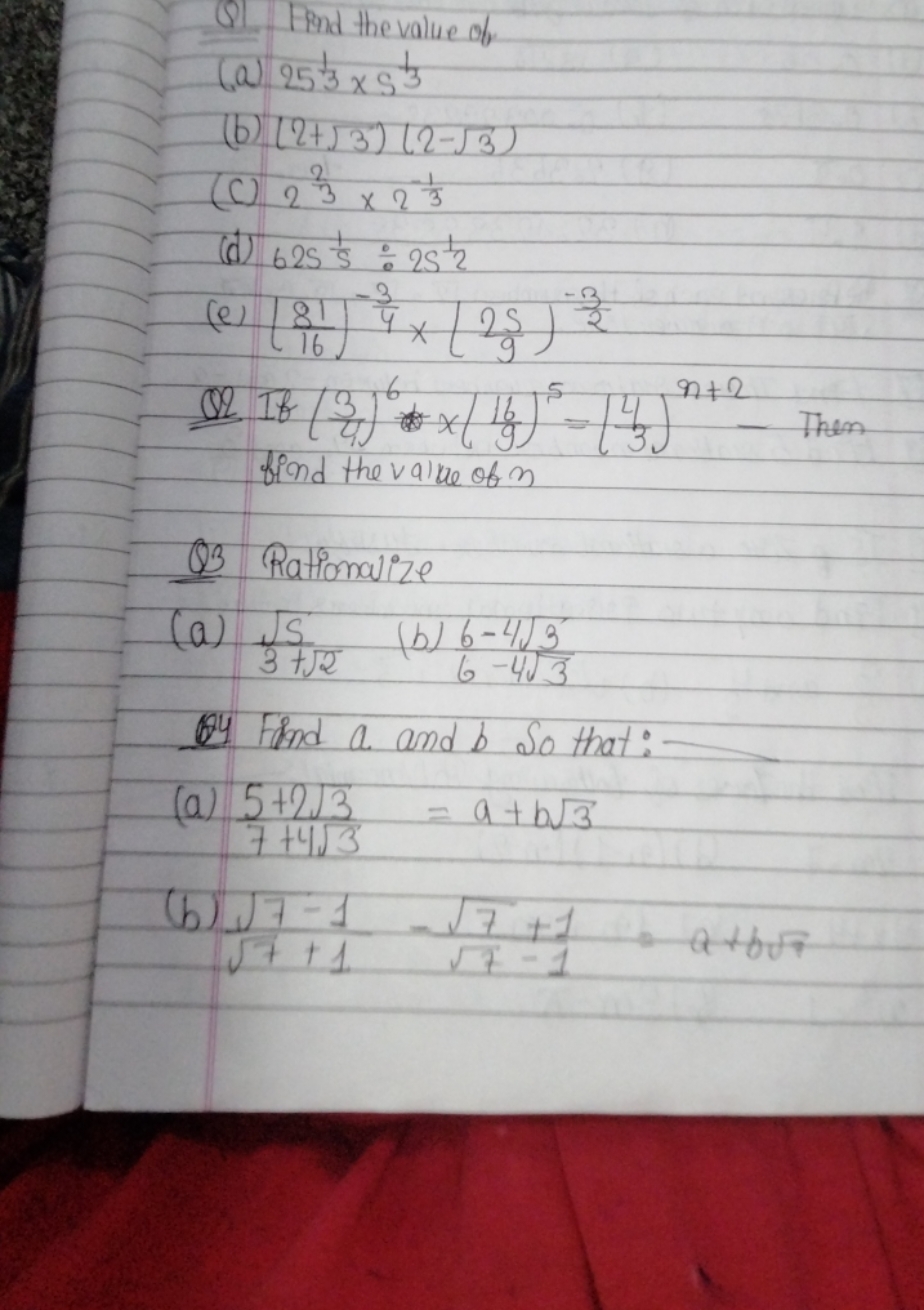 Q1 Find the value of
(a) 25^1/3 × 5^1/3
(b) (2+√3) (2-√3)
(c) 2^2/3 × 2^-1/3
(d) 625^1/5 ÷ 25^1/2
(e) [81/16]^-3/4 × [25/9)^-3/2
Q2 If (3/4)^6 × (16/9)^5 = (4/3)^n+2 — Then
find the value of n
Q3 Rationalize
(a) √5/3+√2 (b) 6-4√3/6-4√3
Q4 Find a and b So that :—
(a) 5+2√3/7+4√3 = a+b√3
(b) √7-1/√7+1 - √7+1/√7-1 = a+b√7